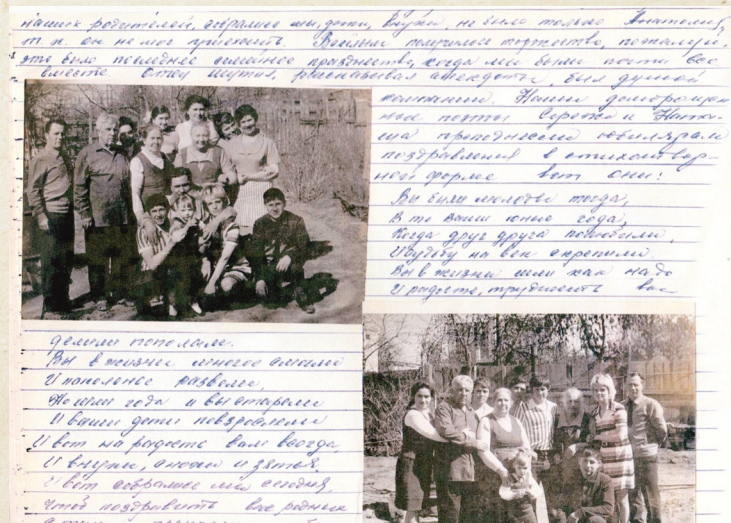 наших родителей, собрались мы, дети, внуки, не было только Анатолия,
т. к. он не мог приехать. торжество, пожалуй,
это было последнее семейное празднество, когда мы были почти все
вместе. Отец шутил, рассказывал анекдоты, был душой
компании. Наши доморощен-
ные поэты Сережа и Ната-
ша преподнесли юбилярам
поздравления в стихотвор-
ной форме вот они:
Вы были молоды тогда,
В те ваши юные года,
Когда друг друга полюбили,
И судьбу на век скрепили.
Вы в жизни шли как надо
И радость, трудность вы
делили пополам.
Вы в жизни многое смогли
И поколенье развели,
Но шли года и вы старели
И ваши дети повзрослели
И вот на радость вам всегда,
И внуки, снохи и зятья.
И вот собрались мы сегодня,
Чтоб поздравить вас родных